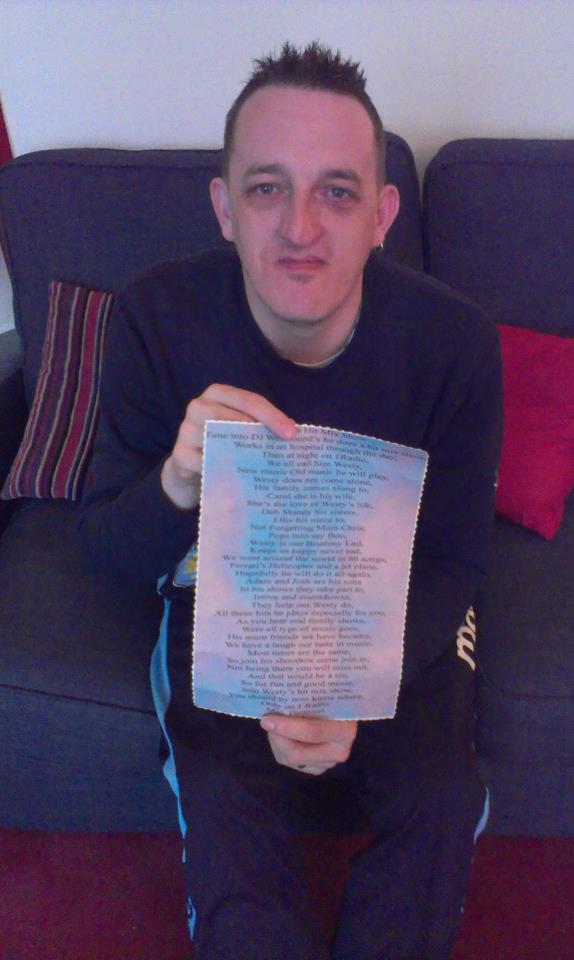 's Hit Mix Show
Tune into DJ Westbound's he does a hit mix show
Works in an hospital through the day,
Then at night on 1Radio,
We all call him Westy,
New music Old music he will play,
Westy does not come alone,
His family comes along to,
Carol she is his wife,
She's the love of Westy's life,
Deb Mandy his sisters,
Effie his niece to,
Not Forgetting Mum Chris,
Pops into say Boo,
Westy is our Brummy Lad,
Keeps us happy never sad,
We went around the world in 80 songs,
Ferrari's Helicopter and a jet plane,
Hopefully he will do it all again,
Adam and Josh are his sons
In his shows they take part to,
Intros and countdowns,
They help our Westy do,
All these hits he plays especially for you,
As you hear real family shows,
Were all type of music goes,
His mum friends we have became,
We have a laugh our taste in music,
Most times are the same,
So join his shoutbox come join in,
Not being there you will miss out,
And that would be a sin,
So for fun and good music,
Join Westy's hit mix show,
You should by now know where,
Only on 1 Radio